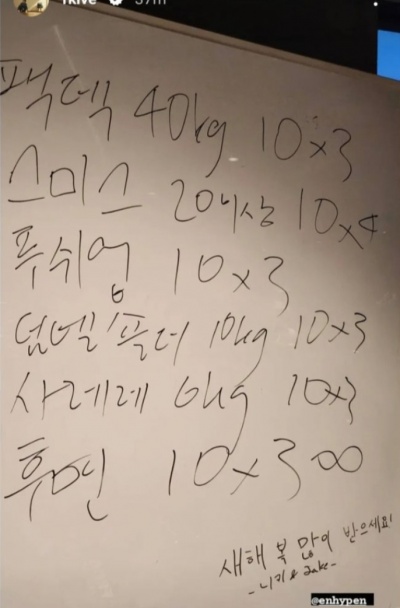 rkive 37m
팩덱 40kg 10x3
스미스 20이상 10x4
푸쉬업 10x3
덤벨 10kg 10x3
사레레 6kg 10x3
후면 10x3 ∞
새해 복 많이 받으세요!
-니키 & Jake-
@enhypen